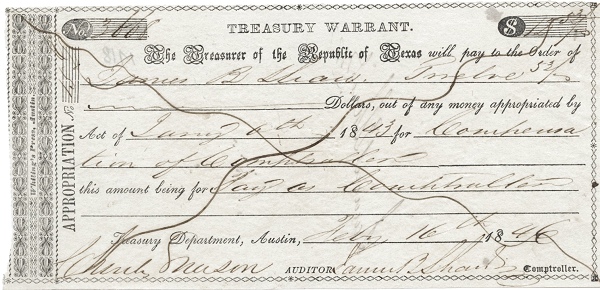 No.
TREASURY WARRANT.
$
The Treasurer of the Republic of Texas will pay to the Order of
James B Shaw. Twelve 53/
Dollars, out of any money appropriated by
Act of Jany 1843 for Compensa
tion of Comptroller
this amount being for Pay as Comptroller
Treasury Department, Austin, Feby 16th 1846
Charles Mason AUDITOR James B. Shaw Comptroller.
APPROPRIATION
Whiting's Press, Austin